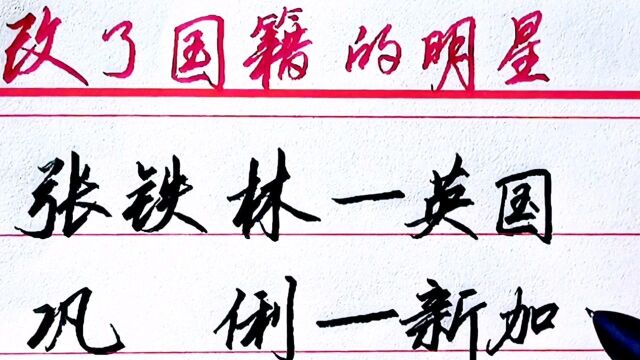 改了国籍的明星
张铁林一英国
巩俐一新加